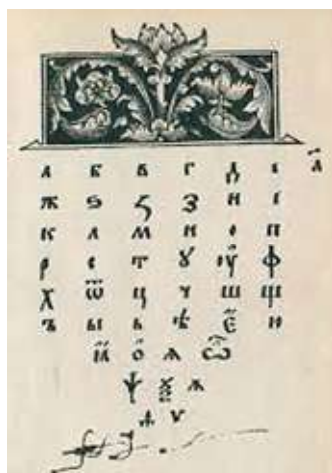 а б в г д е
ж ѕ ꙁ з и і
к л м н о п
р с т ꙋ оу ф
х ѿ ц ч ш щ
ъ ы ь ѣ є ю
ꙗ ѻ ѧ ѽ
ѱ ѯ
ѵ